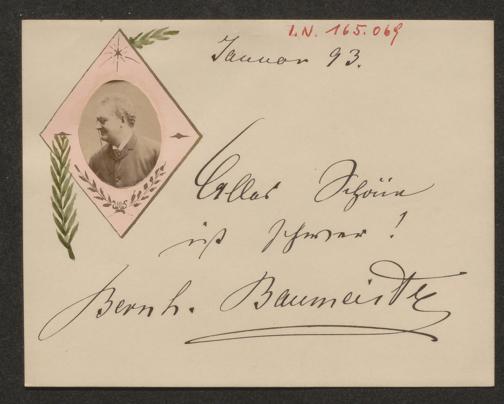 I.N. 165.069
Januar 93.
Alles Schöne
ist schwer!
Bernh. Baumeister